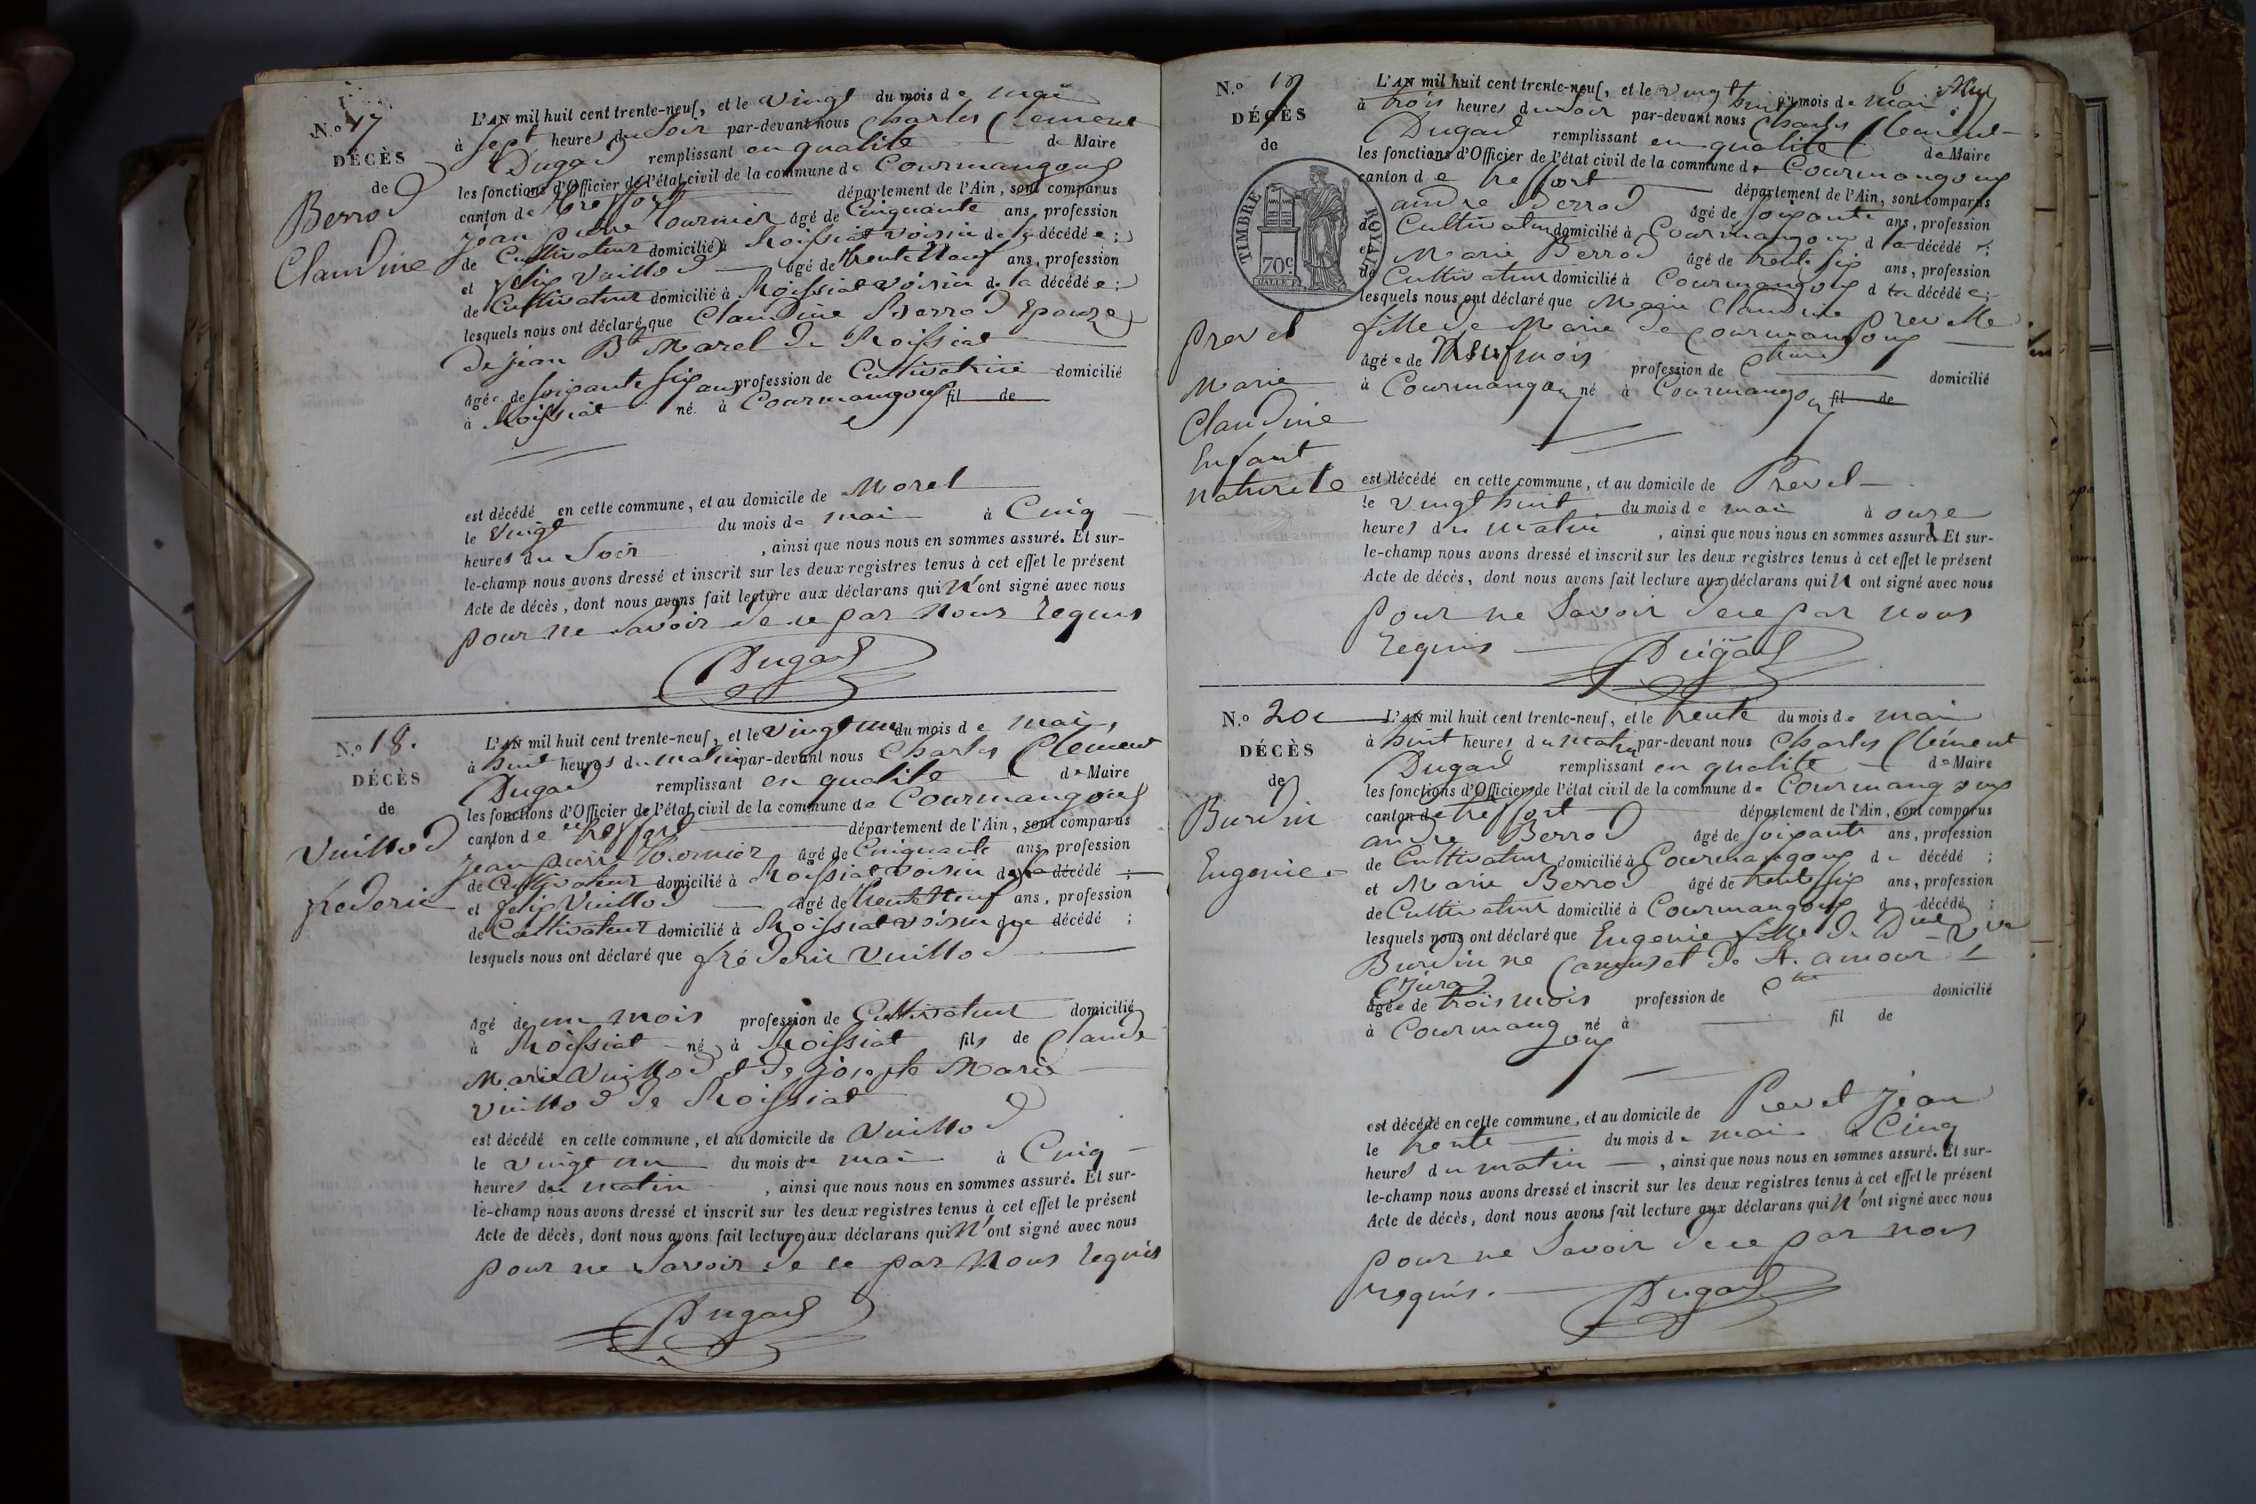 N.o 17
DÉCÈS
de
Berrod
Claudine
L'AN mil huit cent trente-neuf, et le vingt du mois de mai
à sept heures du soir par-devant nous Charles Clément
Dugad remplissant en qualité de Maire
les fonctions d'Officier de l'état civil de la commune de Courmangoux
canton de treffort département de l'Ain, sont comparus
jean pierre tournier âgé de Cinquante ans, profession
de Cultivateur domicilié à Roissiat voisin de la décédée;
et felix Vuillod âgé de trente Neuf ans, profession
de Cultivateur domicilié à Roissiat voisin de la décédée;
lesquels nous ont déclaré que Claudine Berrod Epouze
de jean Bte Morel de Roissiat
âgée de soixante six ans profession de Cultivatrice domicilié
à Roissiat né à Courmangoux fil de
est décédé en cette commune, et au domicile de Morel
le vingt du mois de mai à Cinq
heures du Soir, ainsi que nous nous en sommes assuré. Et sur-
le-champ nous avons dressé et inscrit sur les deux registres tenus à cet effet le présent
Acte de décès, dont nous avons fait lecture aux déclarans qui N'ont signé avec nous
pour ne savoir de ce par Nous requis
Dugad
N.o 18.
DÉCÈS
de
Vuillod
frederic
L'AN mil huit cent trente-neuf, et le vingt un du mois de mai,
à huit heures du matin par-devant nous Charles Clément
Dugad remplissant en qualité de Maire
les fonctions d'Officier de l'état civil de la commune de Courmangoux
canton de treffort département de l'Ain, sont comparus
Jean pierre tournier âgé de Cinquante ans, profession
de Cultivateur domicilié à Roissiat voisin du décédé;
et felix Vuillod âgé de trente Neuf ans, profession
de Cultivateur domicilié à Roissiat voisin du décédé;
lesquels nous ont déclaré que fréderic Vuillod
âgé de un mois profession de Cultivateur domicilié
à Roissiat né à Roissiat fils de Claude
Marie Vuillod et de josephte Marie
Vuillod de Roissiat
est décédé en cette commune, et au domicile de Vuillod
le vingt un du mois de mai à Cinq
heures du matin, ainsi que nous nous en sommes assuré. Et sur-
le-champ nous avons dressé et inscrit sur les deux registres tenus à cet effet le présent
Acte de décès, dont nous avons fait lecture aux déclarans qui N'ont signé avec nous
pour ne savoir de ce par Nous requis
Dugad
N.o 19
DÉCÈS
de
TIMBRE ROYAL
70c
Prevel
Marie
Claudine
Enfant
naturele
6
L'AN mil huit cent trente-neuf, et le vingt huit du mois de mai
à trois heures du soir par-devant nous Charles Clément
Dugad remplissant en qualité de Maire
les fonctions d'Officier de l'état civil de la commune de Courmangoux
canton de treffort département de l'Ain, sont comparus
andre Berrod âgé de soixante ans, profession
de Cultivateur domicilié à Courmangoux d la décédée;
et Marie Berrod âgé de trente six ans, profession
de Cultivateur domicilié à Courmangoux d la décédée;
lesquels nous ont déclaré que Marie Claudine prevelle
fille de Marie de Courmangoux
âgée de Neuf mois profession de domicilié
à Courmangoux né à Courmangoux fil de
est décédé en cette commune, et au domicile de Prevel
le vingt huit du mois de mai à onze
heures du matin, ainsi que nous nous en sommes assuré. Et sur-
le-champ nous avons dressé et inscrit sur les deux registres tenus à cet effet le présent
Acte de décès, dont nous avons fait lecture aux déclarans qui N ont signé avec nous
pour ne savoir de ce par nous
requis
Dugad
N.o 20
DÉCÈS
de
Burdin
Eugenie
L'AN mil huit cent trente-neuf, et le trente du mois de mai
à huit heures du matin par-devant nous Charles Clément
Dugad remplissant en qualité de Maire
les fonctions d'Officier de l'état civil de la commune de Courmangoux
canton de treffort département de l'Ain, sont comparus
andre Berrod âgé de soixante ans, profession
de Cultivateur domicilié à Courmangoux d décédé;
et Marie Berrod âgé de trente six ans, profession
de Cultivateur domicilié à Courmangoux d décédé;
lesquels nous ont déclaré que Eugenie fille de
Burdin ne Camuset de St. amour
(Jura)
âgée de trois mois profession de domicilié
à Courmangoux né à fil de
est décédé en cette commune, et au domicile de Prevel Jean
le trente du mois de mai à Cinq
heures du matin, ainsi que nous nous en sommes assuré. Et sur-
le-champ nous avons dressé et inscrit sur les deux registres tenus à cet effet le présent
Acte de décès, dont nous avons fait lecture aux déclarans qui N'ont signé avec nous
pour ne savoir de ce par nous
requis.
Dugad